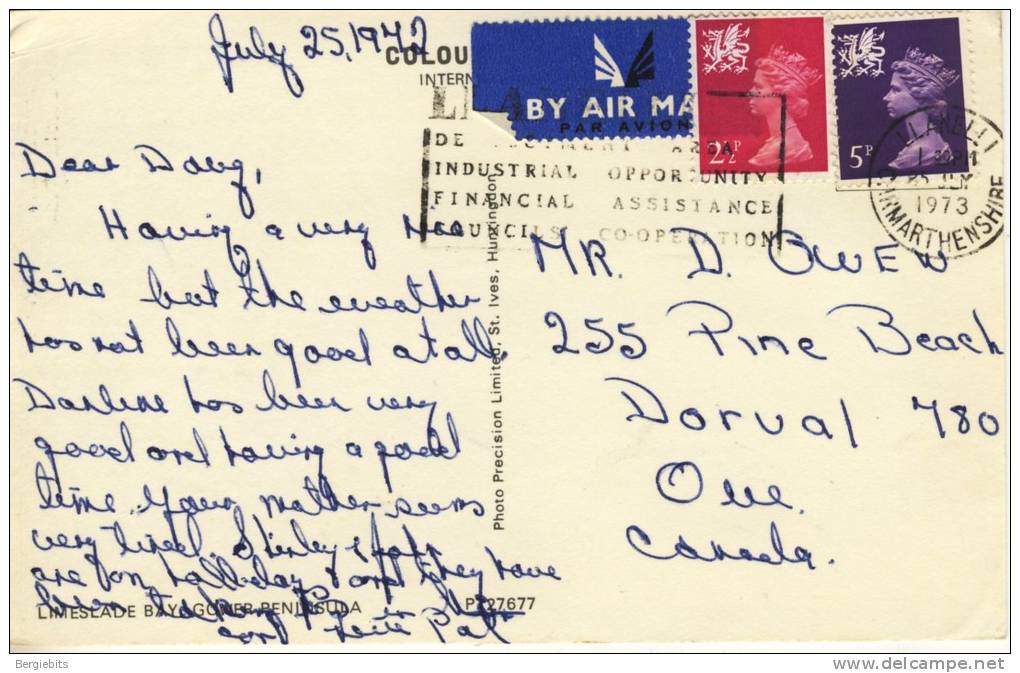 July 25, 1942
COLOU
INTERN
BY AIR MA
PAR AVION
2½P
5P
LLANELLI
1973
CARMARTHENSHIRE
INDUSTRIAL OPPORTUNITY
FINANCIAL ASSISTANCE
COUNCILS CO-OPERATION
Dear Doug,
Having a very nice
time but the weather
has not been good at all.
Darlene has been very
good and having a good
time. Your mother seems
very tired. Shirley &
are on holiday & and they have
been
Pat
LIMESLADE BAY, GOWER PENINSULA
PT27677
Photo Precision Limited, St. Ives, Huntingdon
MR. D. OWEN
255 Pine Beach
Dorval 780
Que.
Canada.
Bergiebits
delcampe.net